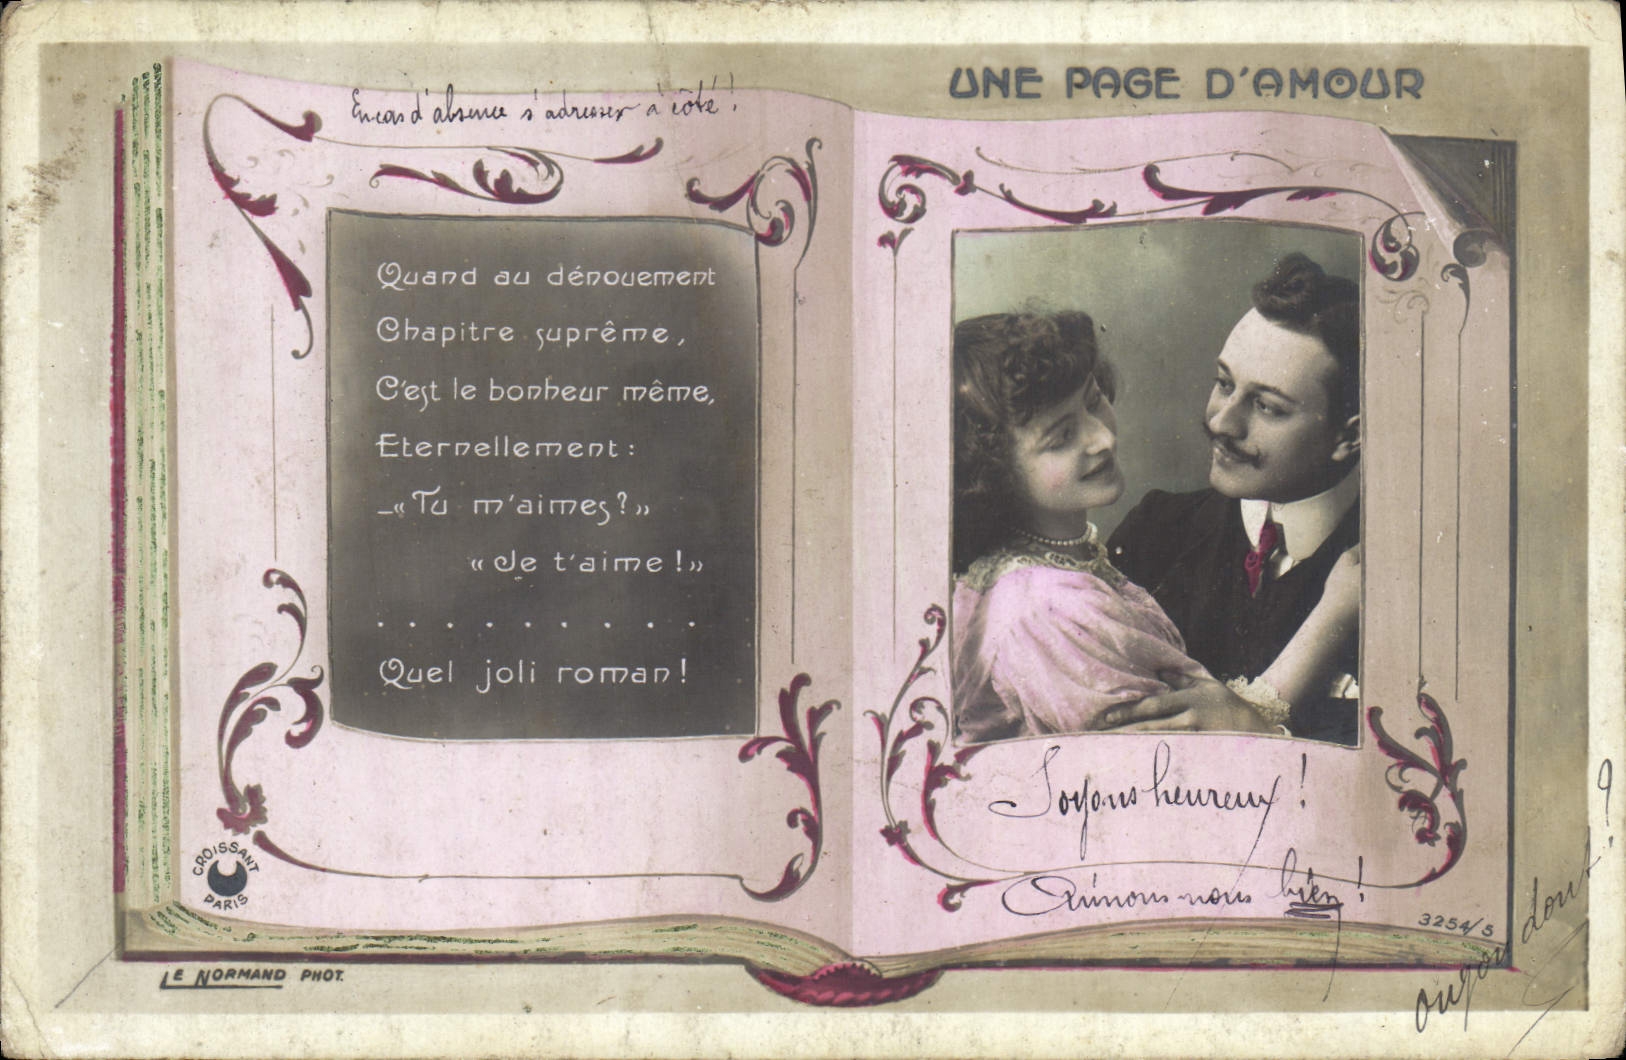 UNE PAGE D'AMOUR
En cas d'absence s'adresser à côté !
Quand au dénouement
Chapitre suprême,
C'est le bonheur même,
Eternellement :
_« Tu m'aimes ? »
« Je t'aime ! »
. . . . . . . . . .
Quel joli roman !
Soyons heureux !
Aimons-nous bien !
CROISSANT
PARIS
3254/5
LE NORMAND PHOT.